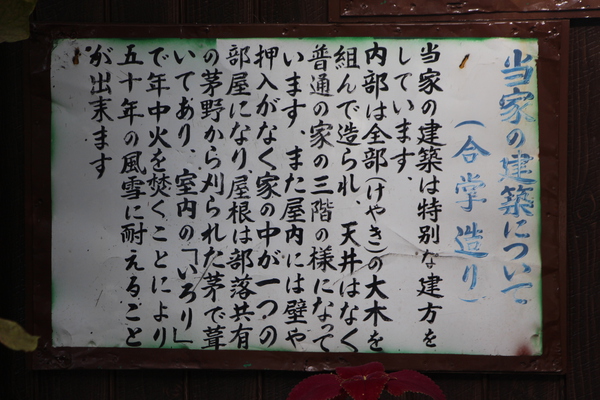 当家の建築について
(合掌造り)
当家の建築は特別な建方を
しています、
内部は全部(けやき)の大木を
組んで造られ、天井はなく
普通の家の三階の様になって
います、また屋内には壁や
押入がなく家の中が一つの
部屋になり屋根は部落共有
の茅野から刈られた茅で葺
いてあり、室内の「いろり」
で年中火を焚くことにより
五十年の風雪に耐えること
が出来ます